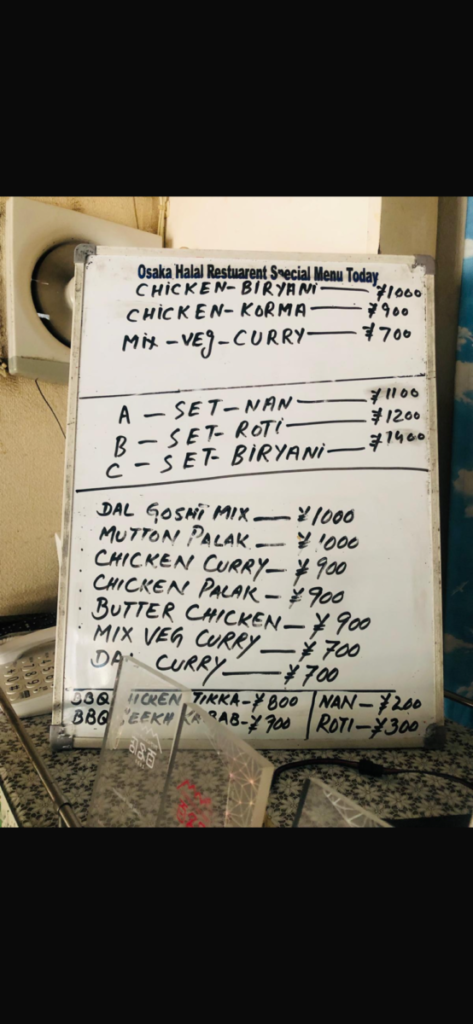 Osaka Halal Restuarent Special Menu Today
CHICKEN-BIRYANI — ¥1000
CHICKEN-KORMA — ¥900
Mix-VEg-CURRY — ¥700
A - SET-NAN — ¥1100
B - SET-ROTI — ¥1200
C - SET-BIRYANI — ¥1400
DAL GOSHT MIX — ¥1000
MUTTON PALAK — ¥1000
CHICKEN CURRY — ¥900
CHICKEN PALAK — ¥900
BUTTER CHICKEN — ¥900
MIX VEG CURRY — ¥700
DAL CURRY — ¥700
BBQ HICKEN TIKKA-¥800 NAN-¥200
BBQ EEKH KABAB-¥ ROTI-¥300